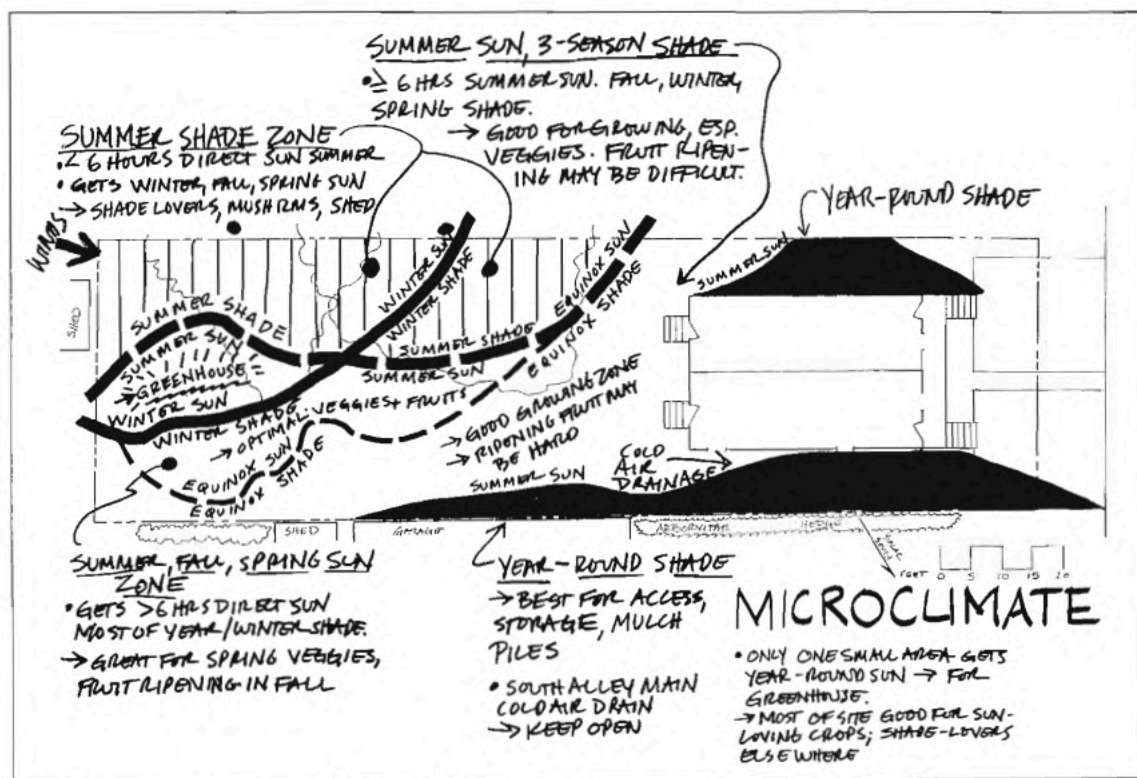 SUMMER SUN, 3-SEASON SHADE
• ≥ 6 HRS SUMMER SUN. FALL, WINTER,
SPRING SHADE.
→ GOOD FOR GROWING, ESP.
VEGGIES. FRUIT RIPEN-
ING MAY BE DIFFICULT.
SUMMER SHADE ZONE
• < 6 HOURS DIRECT SUN SUMMER
• GETS WINTER, FALL, SPRING SUN
→ SHADE LOVERS, MUSHRMS, SHED
YEAR-ROUND SHADE
WINDS
SUMMER SUN
SHED
WINTER SUN
WINTER SHADE
EQUINOX SUN
EQUINOX SHADE
SUMMER SHADE
SUMMER SUN
SUMMER SHADE
SUMMER SUN
→ GREENHOUSE
WINTER SUN
WINTER SHADE
→ OPTIMAL VEGGIES + FRUITS
→ GOOD GROWING ZONE
→ RIPENING FRUIT MAY
BE HARD
EQUINOX SUN
EQUINOX SHADE
COLD
AIR
DRAINAGE
SUMMER SUN
SHED
GARAGE
ARBORVITAE HEDGE
FEET 0 5 10 15 20
SUMMER, FALL, SPRING SUN
ZONE
• GETS >6 HRS DIRECT SUN
MOST OF YEAR/WINTER SHADE.
→ GREAT FOR SPRING VEGGIES,
FRUIT RIPENING IN FALL
YEAR-ROUND SHADE
→ BEST FOR ACCESS,
STORAGE, MULCH
PILES
• SOUTH ALLEY MAIN
COLD AIR DRAIN
→ KEEP OPEN
MICROCLIMATE
• ONLY ONE SMALL AREA GETS
YEAR-ROUND SUN → FOR
GREENHOUSE.
→ MOST OF SITE GOOD FOR SUN-
LOVING CROPS; SHADE-LOVERS
ELSEWHERE